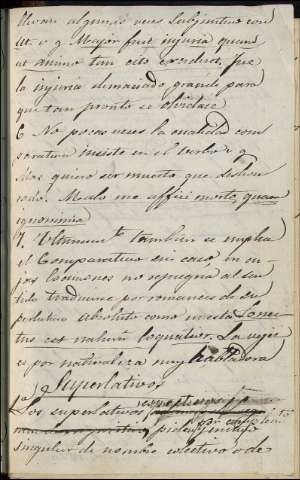 llevan algunas veces Subjuntivo con
ut. v. g. Major fuit injuria quam
ut animo tan cito excideret, fue
la injuria demasiado grande para
que tan pronto se olvidase
6. No pocas veces la cualidad com
parativa insiste en el verbo v g
Mas quiero ser muerto que deshon
rado. Malo me affici morte, quam
ignominia
7. Ultimamte. tambien se emplea
el Comparativo sin caso, en cu-
jas locuciones no repugna al sen
tido traducirse por romances de Su
perlativo absoluto como mulier Senec
tus est natura loquatior. La vejez
es por naturaleza muy habladora
Superlativos
1a) Los superlativos
piden
singular de nombre colectivo o de